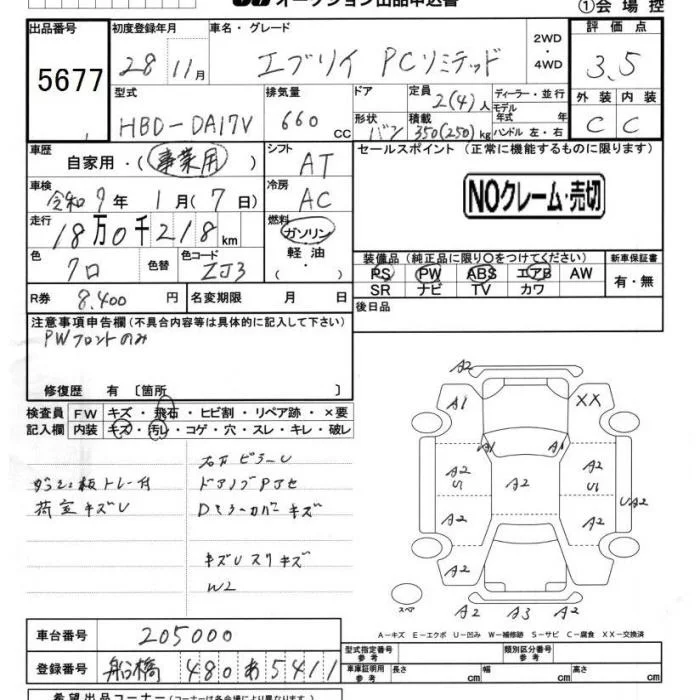 オークション出品申込書
①会場控
出品番号 初度登録年月 車名・グレード 2WD 評価点
5677 28 11月 エブリイ PCリミテッド ・4WD 3.5
型式 排気量 ドア 定員 2(4)人 ディーラー・並行 外装 内装
HBD-DA17V 660 CC 形状 バン 積載 350(250)kg モデル年式 年 ハンドル 左・右 C C
車歴 自家用・(事業用) シフト AT セールスポイント(正常に機能するものに限ります)
車検 令和7年 1月(7日) 冷房 AC NOクレーム・売切
走行 18万0千218km 燃料 ガソリン
色 クロ 色替 色コード ZJ3 軽油 装備品(純正品に限り○をつけてください) 新車保証書
PS PW ABS エアB AW 有・無
R券 8,400円 名変期限 月 日 SR ナビ TV カワ
後日品
注意事項申告欄(不具合内容等は具体的に記入して下さい)
PWフロントのみ
修復歴 有〔箇所 〕
検査員 FW キズ・飛石・ヒビ割・リペア跡・×要
記入欄 内装 キズ・汚レ・コゲ・穴・スレ・キレ・破レ
左右ピラーU
トレー付 ドアノブ
荷室キズU Dミラーカバーキズ
キズUスリキズ
W2
A2
A1 XX
A1 A1
A2 A2 A2
U1 U1 UA2
A2 A2
A2
スペア A2 A3 A2
A-キズ E-エクボ U-凹み W-補修跡 S-サビ C-腐食 XX-交換済
車台番号 205000 型式指定番号 参考 類別区分番号 参考
登録番号 船橋 480 あ 5411 車庫証明用 参考 長さ cm 幅 cm 高さ cm
希望出品コーナー(コーナーは各会場により異なります)